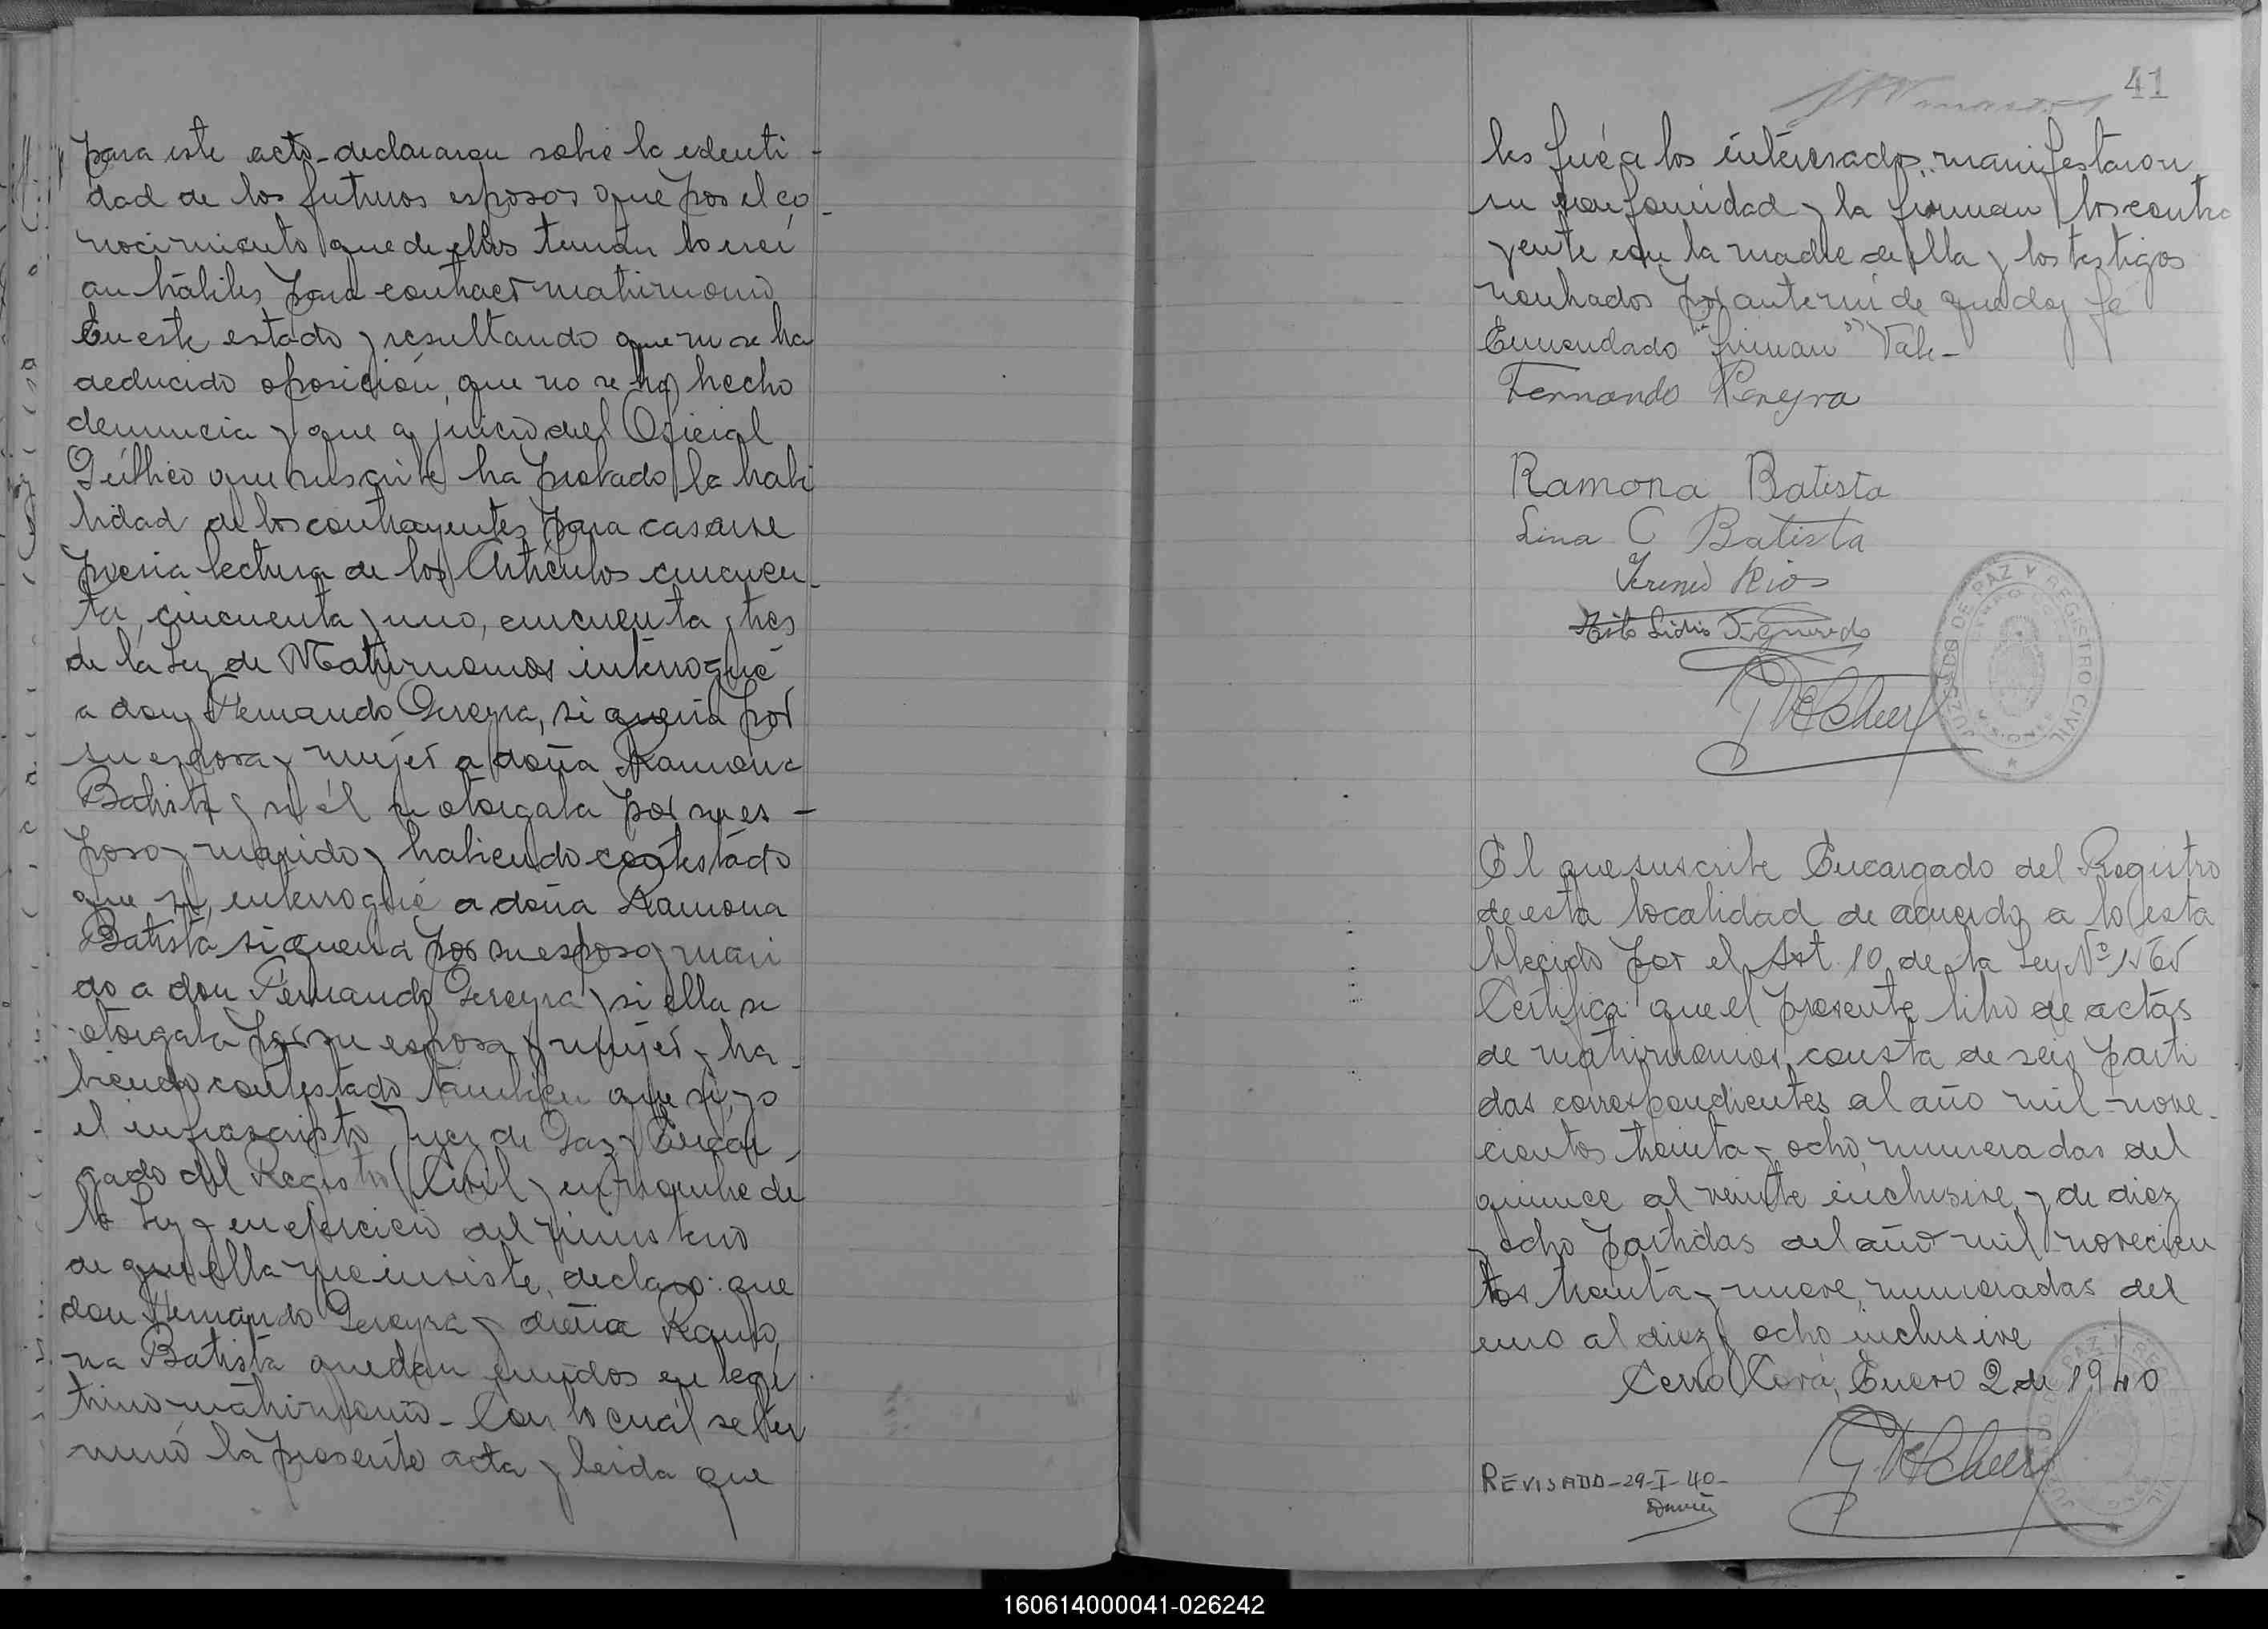 para este acto declararon sobre la identi-
dad de los futuros esposos que por el co-
nocimiento que de ellos tenían lo creí
an hábiles para contraer matrimonio
En este estado y resultando que no se ha
deducido oposición, que no se ha hecho
denuncia y que a juicio del Oficial
Público que suscribe ha probado la habi
lidad de los contrayentes para casarse
previa lectura de los Artículos cincuen-
ta, cincuenta y uno, cincuenta y tres
de la Ley de Matrimonios interrogué
a don Fernando Pereyra, si quería por
su esposa y mujer a doña Ramona
Batista y si él se otorgaba por su es-
poso y marido y habiendo contestado
que si, interrogué a doña Ramona
Batista si quería por su esposo y mari
do a don Fernando Pereyra y si ella se
otorgaba por su esposa y mujer y ha-
biendo contestado también que si, yo
el infrascripto Juez de Paz y Encar-
gado del Registro Civil y en nombre de
la Ley y en ejercicio del ministerio
de que ella me inviste, declaro: que
don Fernando Pereyra y doña Ramo
na Batista quedan unidos en legí
timo matrimonio- Con lo cuál se ter
minó la presente acta y leida que
41
les fué a los interesados manifestaron
su conformidad y la firman los contra
yente con la madre de ella y los testigos
nombrados por ante mí de que doy fé
Enmendado "firman" Vale-
Fernando Pereyra
Ramona Batista
Lina C Batista
Rios
JUZGADO DE PAZ Y REGISTRO CIVIL
El que suscribe Encargado del Registro
de esta localidad de acuerdo a lo esta
blecido por el Art 10 de la Ley Nº 1565
Certifica: que el presente libro de actas
de matrimonios, consta de seis parti
das correspondientes al año mil nove-
cientos treinta y ocho, numeradas del
quince al veinte inclusive y de diez
y ocho partidas del año mil novecien
tos treinta y nueve, numeradas del
uno al diez y ocho inclusive
Cerro Corá, Enero 2 de 1940
REVISADO-29-I-40-
160614000041-026242